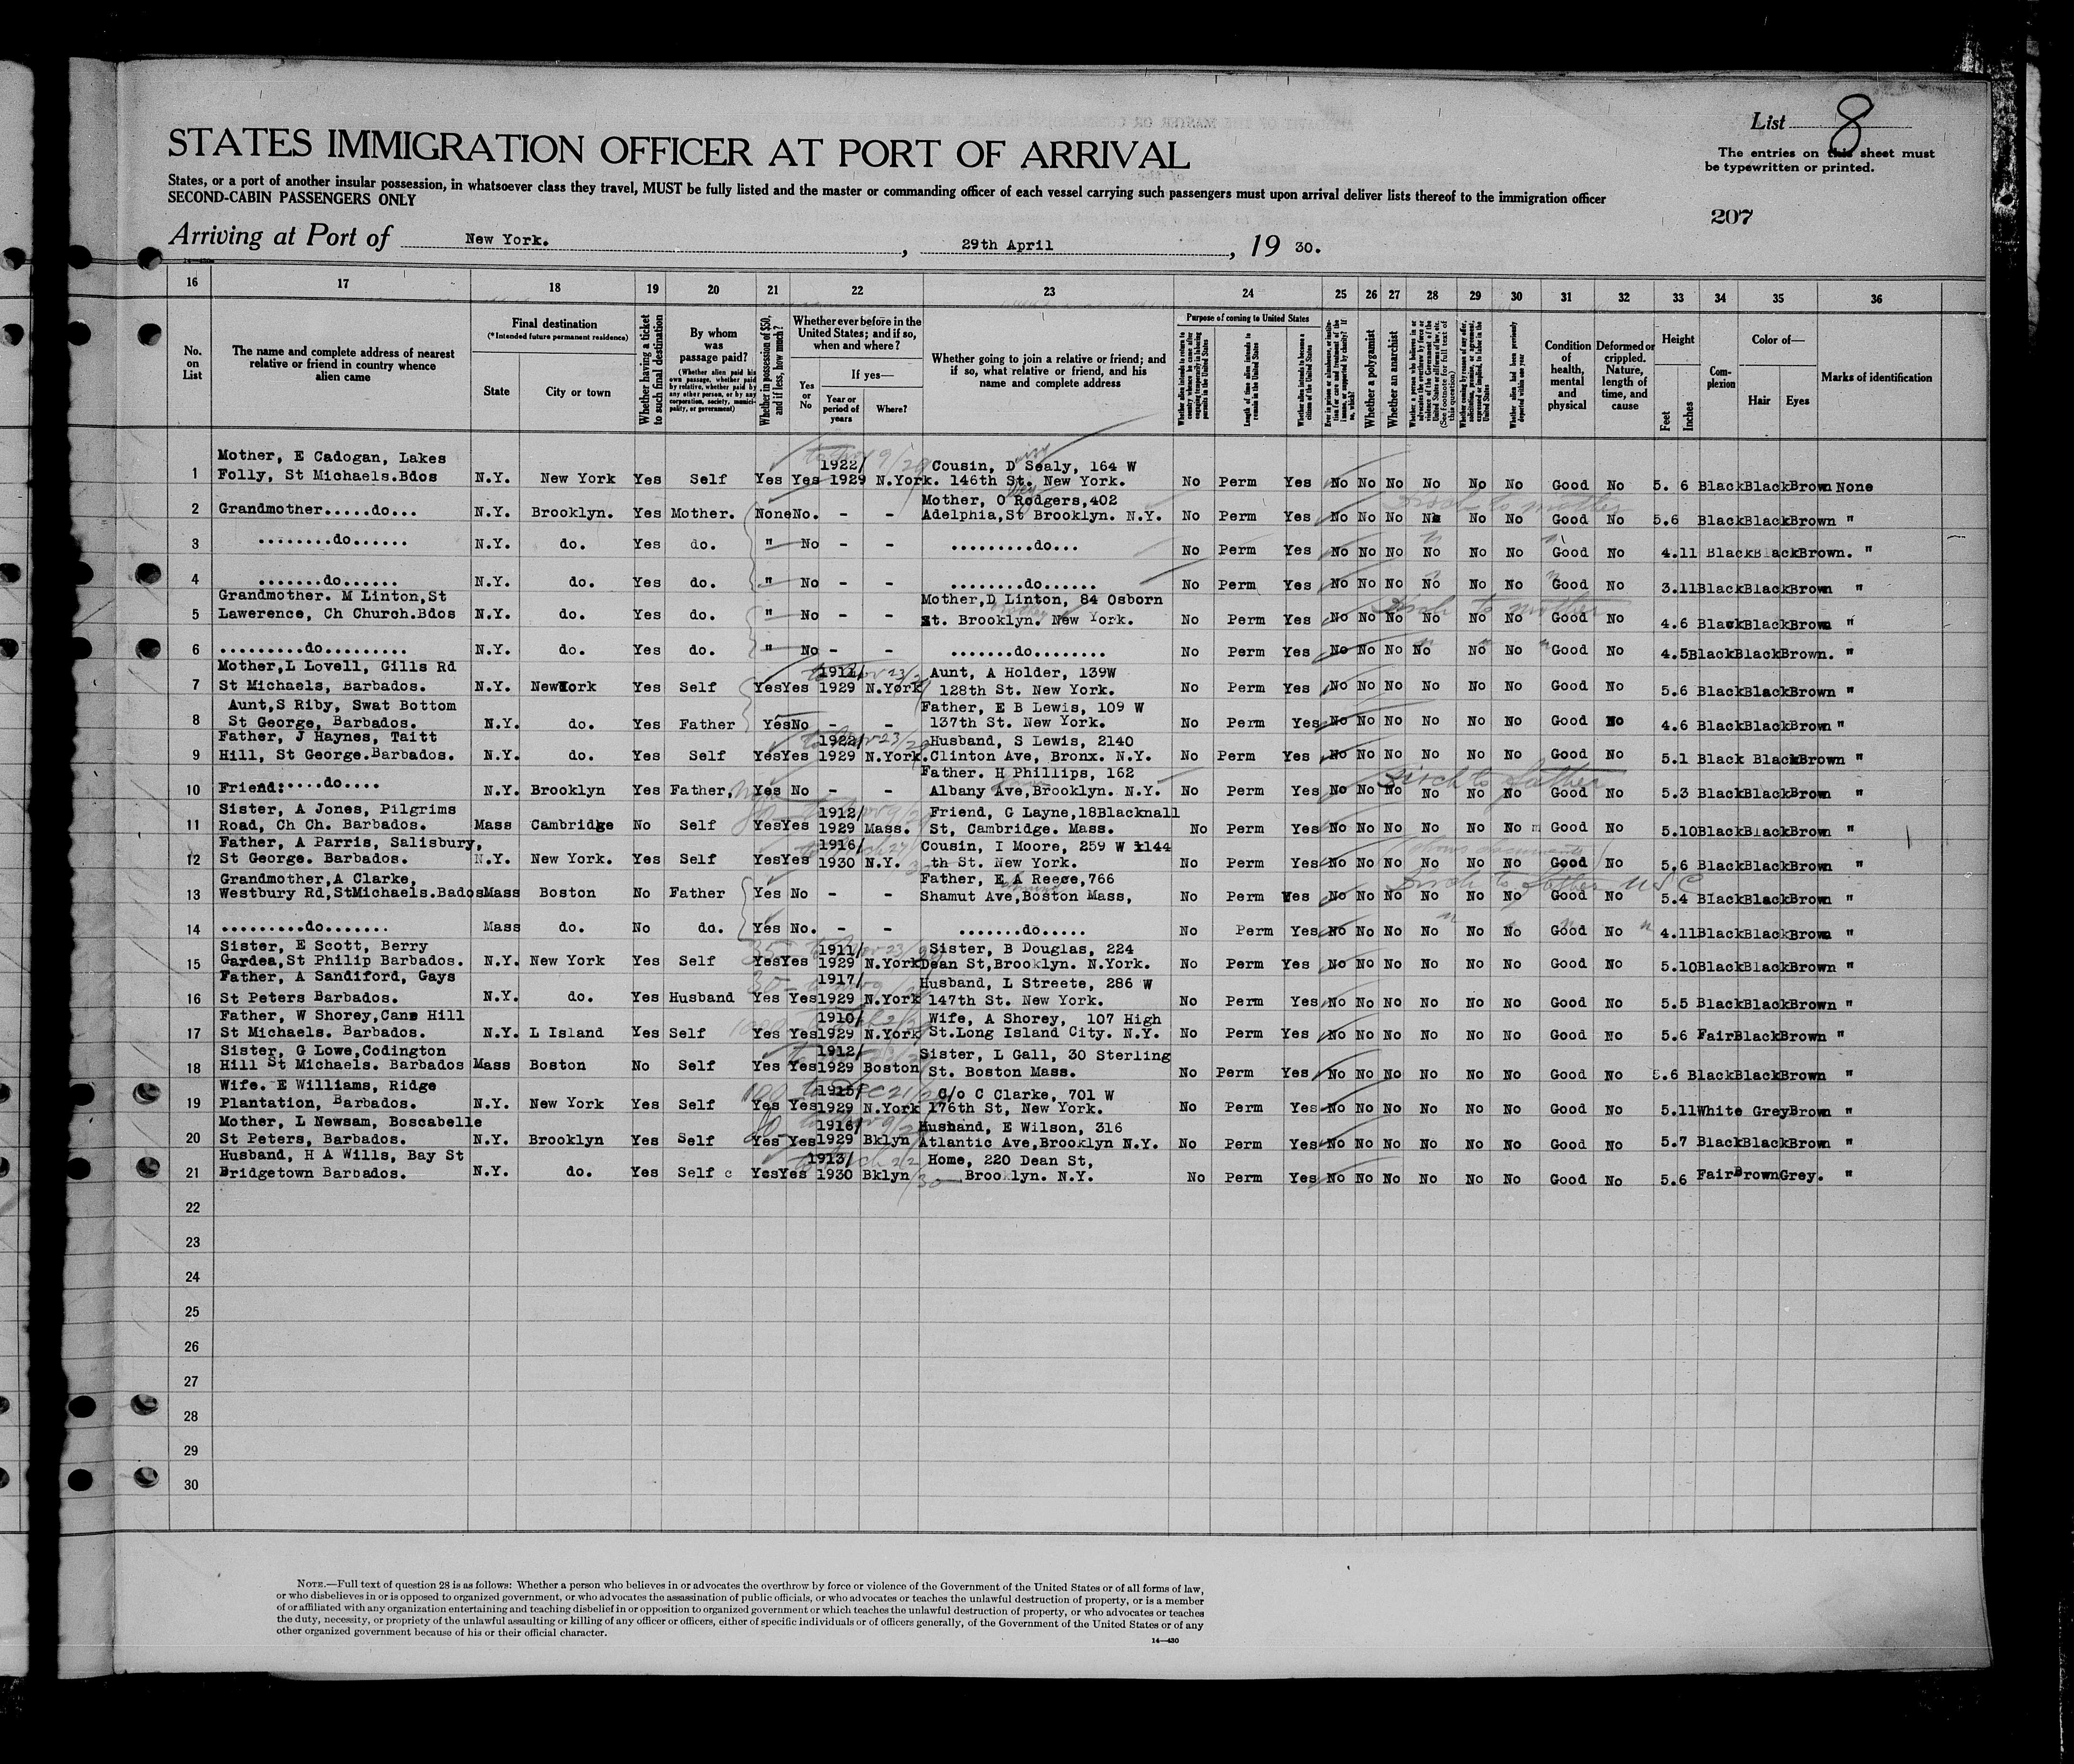 List 8
The entries on this sheet must
be typewritten or printed.
STATES IMMIGRATION OFFICER AT PORT OF ARRIVAL
States, or a port of another insular possession, in whatsoever class they travel, MUST be fully listed and the master or commanding officer of each vessel carrying such passengers must upon arrival deliver lists thereof to the immigration officer
SECOND-CABIN PASSENGERS ONLY
207
Arriving at Port of New York. , 29th April , 19 30.
16 17 18 19 20 21 22 23 24 25 26 27 28 29 30 31 32 33 34 35 36
No. on List
The name and complete address of nearest relative or friend in country whence alien came
Final destination
(*Intended future permanent residence)
State
City or town
Whether having a ticket to such final destination
By whom was passage paid?
(Whether alien paid his own passage, whether paid by relative, whether paid by any other person, or by any corporation, society, municipality, or government)
Whether in possession of $50, and if less, how much?
Whether ever before in the United States; and if so, when and where?
Yes or No
If yes—
Year or period of years
Where?
Whether going to join a relative or friend; and if so, what relative or friend, and his name and complete address
Purpose of coming to United States
Length of time alien intends to remain in the United States
Whether alien intends to become a citizen of the United States
Whether a polygamist
Whether an anarchist
Whether alien had been previously deported within one year
Condition of health, mental and physical
Deformed or crippled. Nature, length of time, and cause
Height
Feet
Inches
Complexion
Color of—
Hair
Eyes
Marks of identification
Mother, E Cadogan, Lakes 1922/ Cousin, D Sealy, 164 W
1 Folly, St Michaels.Bdos N.Y. New York Yes Self Yes Yes 1929 N.York. 146th St. New York. No Perm Yes No No No No No No Good No 5. 6 Black Black Brown None
Mother, O Rodgers,402
2 Grandmother.....do... N.Y. Brooklyn. Yes Mother. None No. - - Adelphia,St Brooklyn. N.Y. No Perm Yes No No No No No No Good No 5.6 Black Black Brown "
3 ........do...... N.Y. do. Yes do. " No - - .........do... No Perm Yes No No No No No No Good No 4.11 Black Black Brown. "
4 .......do...... N.Y. do. Yes do. " No - - ........do...... No Perm Yes No No No No No No Good No 3.11 Black Black Brown "
Grandmother. M Linton,St Mother,D Linton, 84 Osborn
5 Lawerence, Ch Church.Bdos N.Y. do. Yes do. " No - - St. Brooklyn. New York. No Perm Yes No No No No No No Good No 4.6 Black Black Brown "
6 .........do......... N.Y. do. Yes do. " No - - .......do........ No Perm Yes No No No No No No Good No 4.5 Black Black Brown. "
Mother,L Lovell, Gills Rd 1911/ Aunt, A Holder, 139W
7 St Michaels, Barbados. N.Y. New York Yes Self Yes Yes 1929 N.York 128th St. New York. No Perm Yes No No No No No No Good No 5.6 Black Black Brown "
Aunt,S Riby, Swat Bottom Father, E B Lewis, 109 W
8 St George, Barbados. N.Y. do. Yes Father Yes No - - 137th St. New York. No Perm Yes No No No No No No Good No 4.6 Black Black Brown "
Father, J Haynes, Taitt 1922/ Husband, S Lewis, 2140
9 Hill, St George.Barbados. N.Y. do. Yes Self Yes Yes 1929 N.York. Clinton Ave, Bronx. N.Y. No Perm Yes No No No No No No Good No 5.1 Black Black Brown "
Father. H Phillips, 162
10 Friend:.....do.... N.Y. Brooklyn Yes Father, Yes No - - Albany Ave,Brooklyn. N.Y. No Perm Yes No No No No No No Good No 5.3 Black Black Brown "
Sister, A Jones, Pilgrims 1912/ Friend, G Layne,18Blacknall
11 Road, Ch Ch. Barbados. Mass Cambridge No Self Yes Yes 1929 Mass. St, Cambridge. Mass. No Perm Yes No No No No No No Good No 5.10 Black Black Brown "
Father, A Parris, Salisbury, 1916/ Cousin, I Moore, 259 W 1144
12 St George. Barbados. N.Y. New York. Yes Self Yes Yes 1930 N.Y. th St. New York. No Perm Yes No No No No No No Good No 5.6 Black Black Brown "
Grandmother,A Clarke, Father, E A Reece,766
13 Westbury Rd,StMichaels.Bados Mass Boston No Father Yes No - - Shamut Ave,Boston Mass, No Perm Yes No No No No No No Good No 5.4 Black Black Brown "
14 .........do....... Mass do. No do. Yes No. - - .......do..... No Perm Yes No No No No No No Good No 4.11 Black Black Brown "
Sister, E Scott, Berry 1911/ Sister, B Douglas, 224
15 Gardea,St Philip Barbados. N.Y. New York Yes Self Yes Yes 1929 N.York Dean St,Brooklyn. N.York. No Perm Yes No No No No No No Good No 5.10 Black Black Brown "
Father, A Sandiford, Gays 1917/ Husband, L Streete, 286 W
16 St Peters Barbados. N.Y. do. Yes Husband Yes Yes 1929 N.York 147th St. New York. No Perm Yes No No No No No No Good No 5.5 Black Black Brown "
Father, W Shorey,Cane Hill 1910/ Wife, A Shorey, 107 High
17 St Michaels. Barbados. N.Y. L Island Yes Self Yes Yes 1929 N.York St.Long Island City. N.Y. No Perm Yes No No No No No No Good No 5.6 Fair Black Brown "
Sister, G Lowe,Codington 1912/ Sister, L Gall, 30 Sterling
18 Hill St Michaels. Barbados Mass Boston No Self Yes Yes 1929 Boston St. Boston Mass. No Perm Yes No No No No No No Good No 5.6 Black Black Brown "
Wife. E Williams, Ridge 1915/ C/o C Clarke, 701 W
19 Plantation, Barbados. N.Y. New York Yes Self Yes Yes 1929 N.York 176th St, New York. No Perm Yes No No No No No No Good No 5.11 White Grey Brown "
Mother, L Newsam, Boscabelle 1916/ Husband, E Wilson, 316
20 St Peters, Barbados. N.Y. Brooklyn Yes Self Yes Yes 1929 Bklyn Atlantic Ave,Brooklyn N.Y. No Perm Yes No No No No No No Good No 5.7 Black Black Brown "
Husband, H A Wills, Bay St 1913/ Home, 220 Dean St,
21 Bridgetown Barbados. N.Y. do. Yes Self c Yes Yes 1930 Bklyn Brooklyn. N.Y. No Perm Yes No No No No No No Good No 5.6 Fair Brown Grey. "
22
23
24
25
26
27
28
29
30
NOTE.—Full text of question 28 is as follows: Whether a person who believes in or advocates the overthrow by force or violence of the Government of the United States or of all forms of law,
or who disbelieves in or is opposed to organized government, or who advocates the assassination of public officials, or who advocates or teaches the unlawful destruction of property, or is a member
of or affiliated with any organization entertaining and teaching disbelief in or opposition to organized government or which teaches the unlawful destruction of property, or who advocates or teaches
the duty, necessity, or propriety of the unlawful assaulting or killing of any officer or officers, either of specific individuals or of officers generally, of the Government of the United States or of any
other organized government because of his or their official character.
14—430